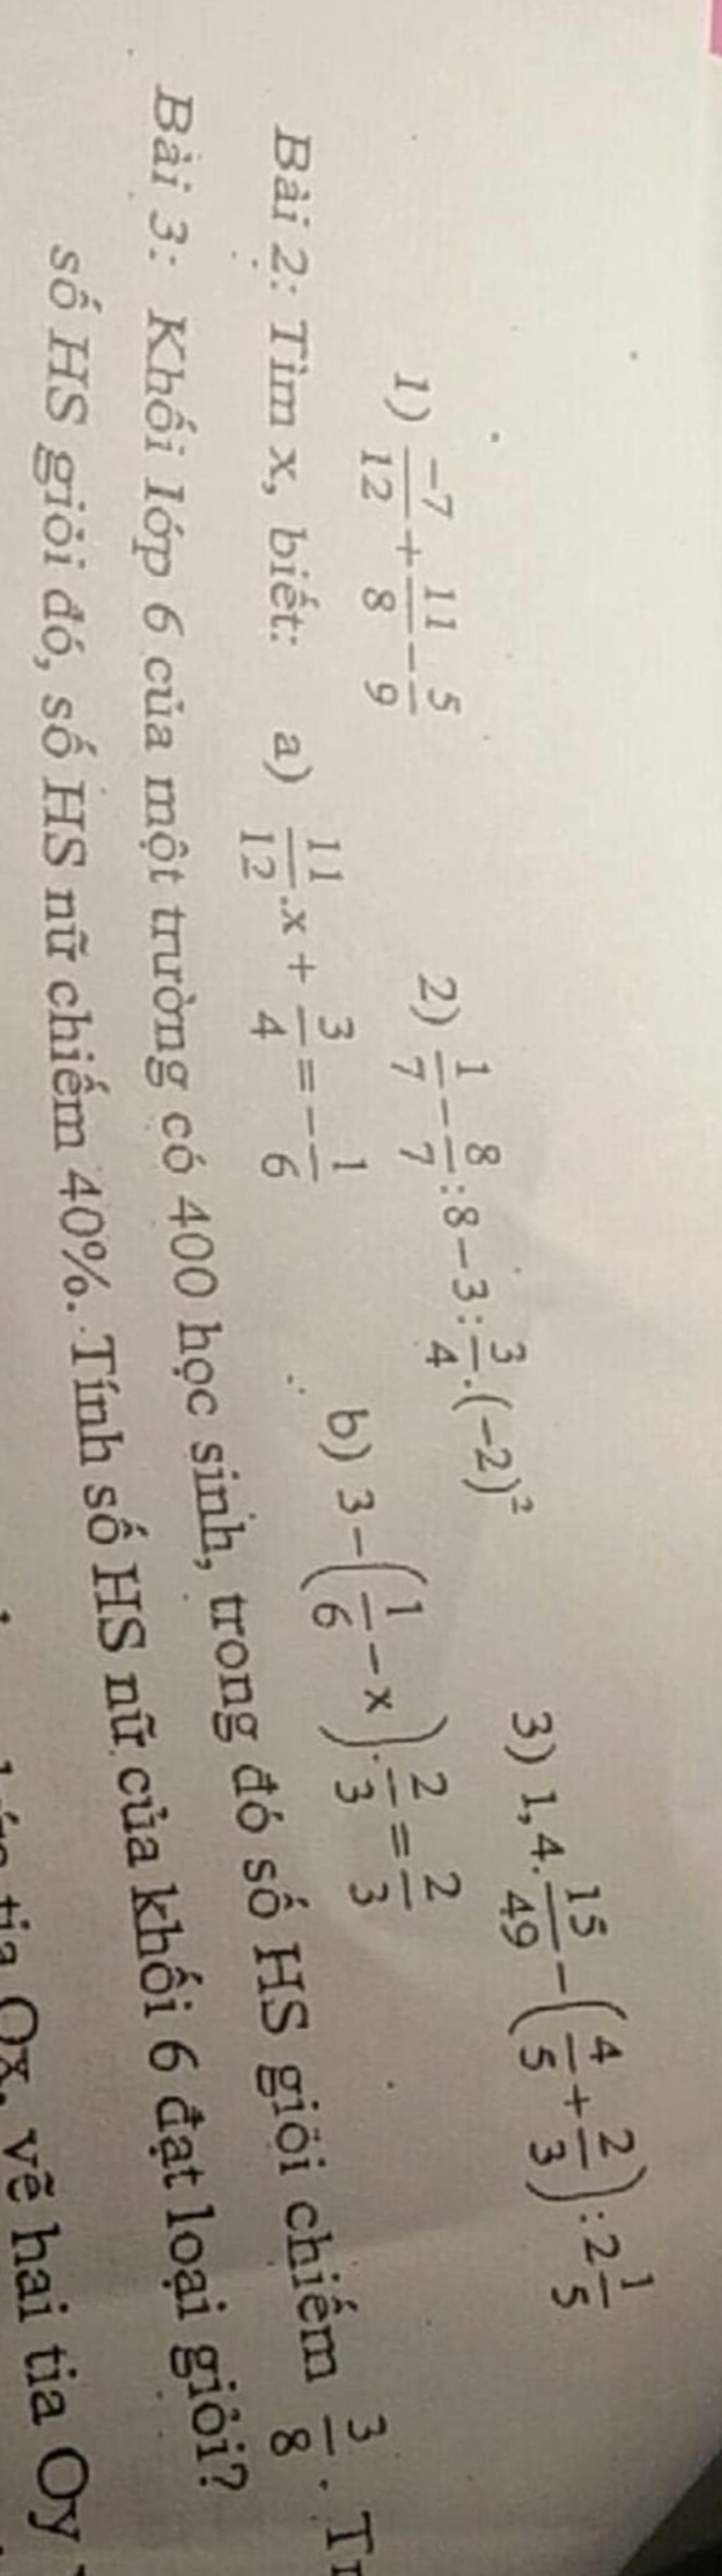 1) -7/12 + 11/8 - 5/9 2) 1/7 - 8/7 : 8 - 3 : 3/4 . (-2)² 3) 1,4 . 15/49 - (4/5 + 2/3) : 2 1/5
Bài 2: Tìm x, biết: a) 11/12 .x + 3/4 = - 1/6 b) 3 - (1/6 - x) . 2/3 = 2/3
Bài 3: Khối lớp 6 của một trường có 400 học sinh, trong đó số HS giỏi chiếm 3/8 .
số HS giỏi đó, số HS nữ chiếm 40%. Tính số HS nữ của khối 6 đạt loại giỏi?
tia Ox, vẽ hai tia Oy